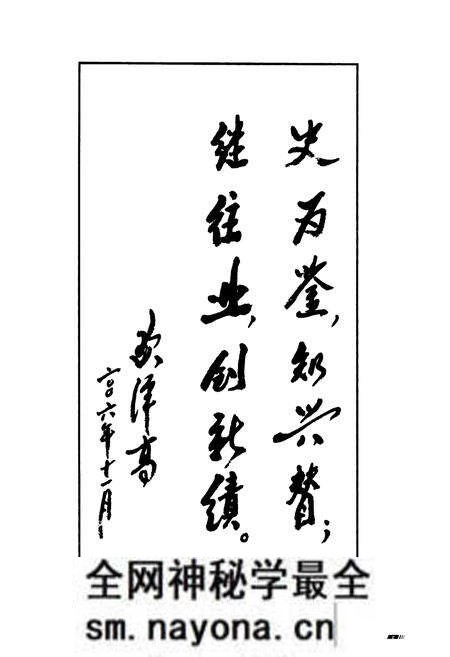 史为鉴，知兴替；
继往业，创新绩。
欧泽高
二〇〇六年十一月
全网神秘学最全
sm.nayona.cn